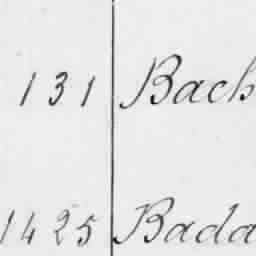 131 Bach
1425 Bada